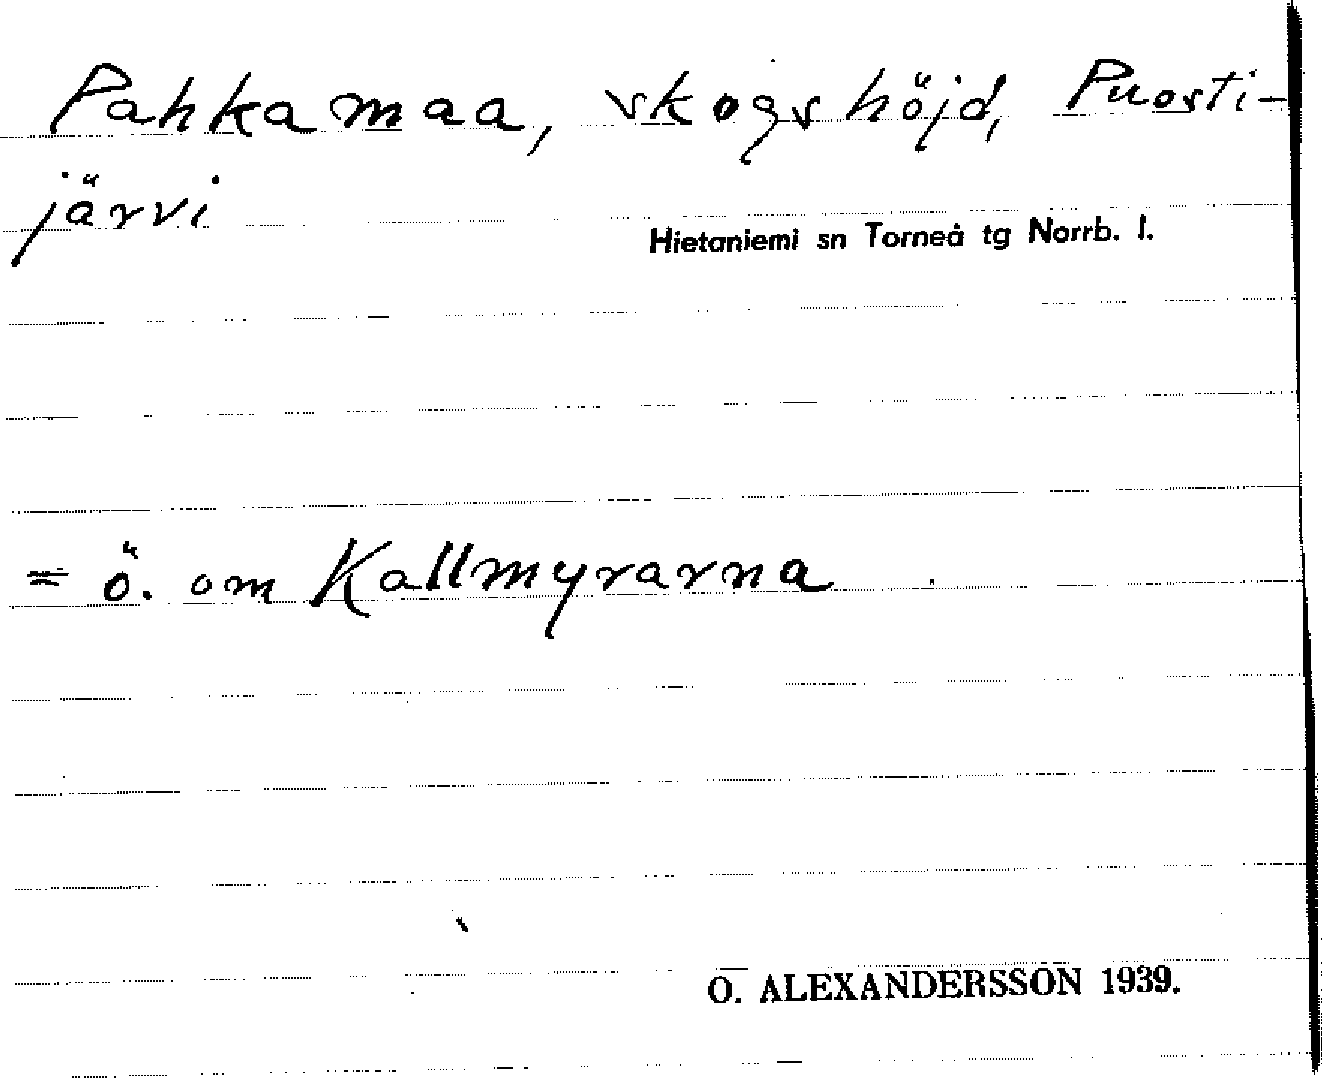 Pahkamaa, skogshöjd, Puosti-
järvi
Hietaniemi sn Torneå tg Norrb. l.
= ö. om Kallmyrarna
O. ALEXANDERSSON 1939.